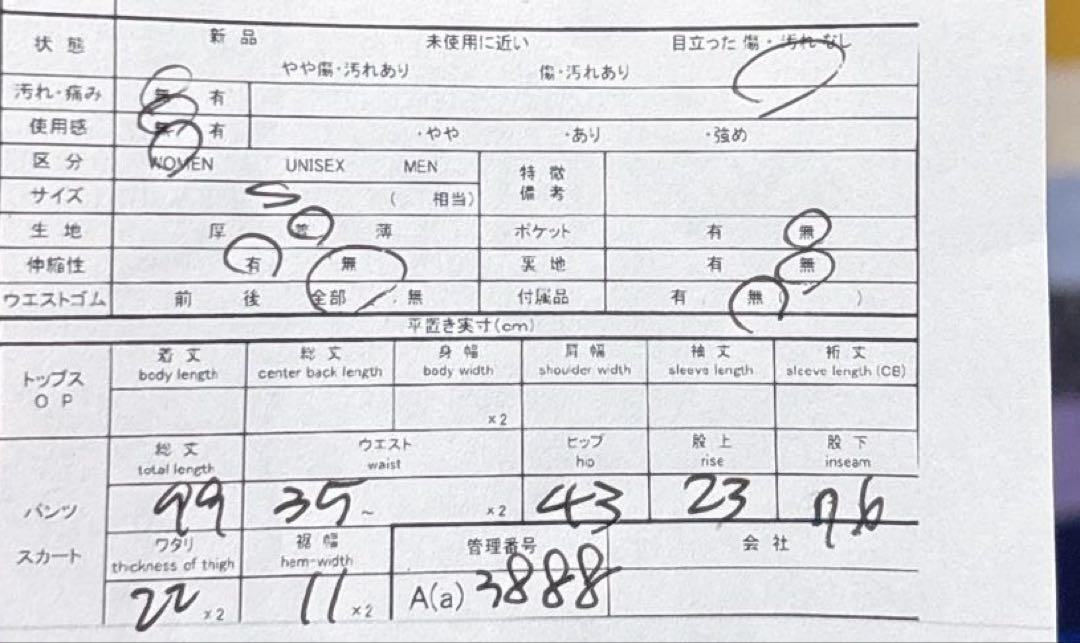 状態 新品 未使用に近い 目立った傷・汚れなし
やや傷・汚れあり 傷・汚れあり
汚れ・痛み 無 有
使用感 無 有 ・やや ・あり ・強め
区分 WOMEN UNISEX MEN 特徴
備考
サイズ S ( 相当)
生地 厚 普 薄 ポケット 有 無
伸縮性 有 無 裏地 有 無
ウエストゴム 前 後 全部 . 無 付属品 有 無 ( )
平置き実寸(cm)
トップス
OP
着丈 総丈 身幅 肩幅 袖丈 裄丈
body length center back length body width shoulder width sleeve length sleeve length (CB)
×2
総丈 ウエスト ヒップ 股上 股下
total length waist hip rise inseam
パンツ 99 35 ~ ×2 43 23 76
スカート ワタリ 裾幅 管理番号 会社
thickness of thigh hem-width
22 ×2 11 ×2 A(a) 3888